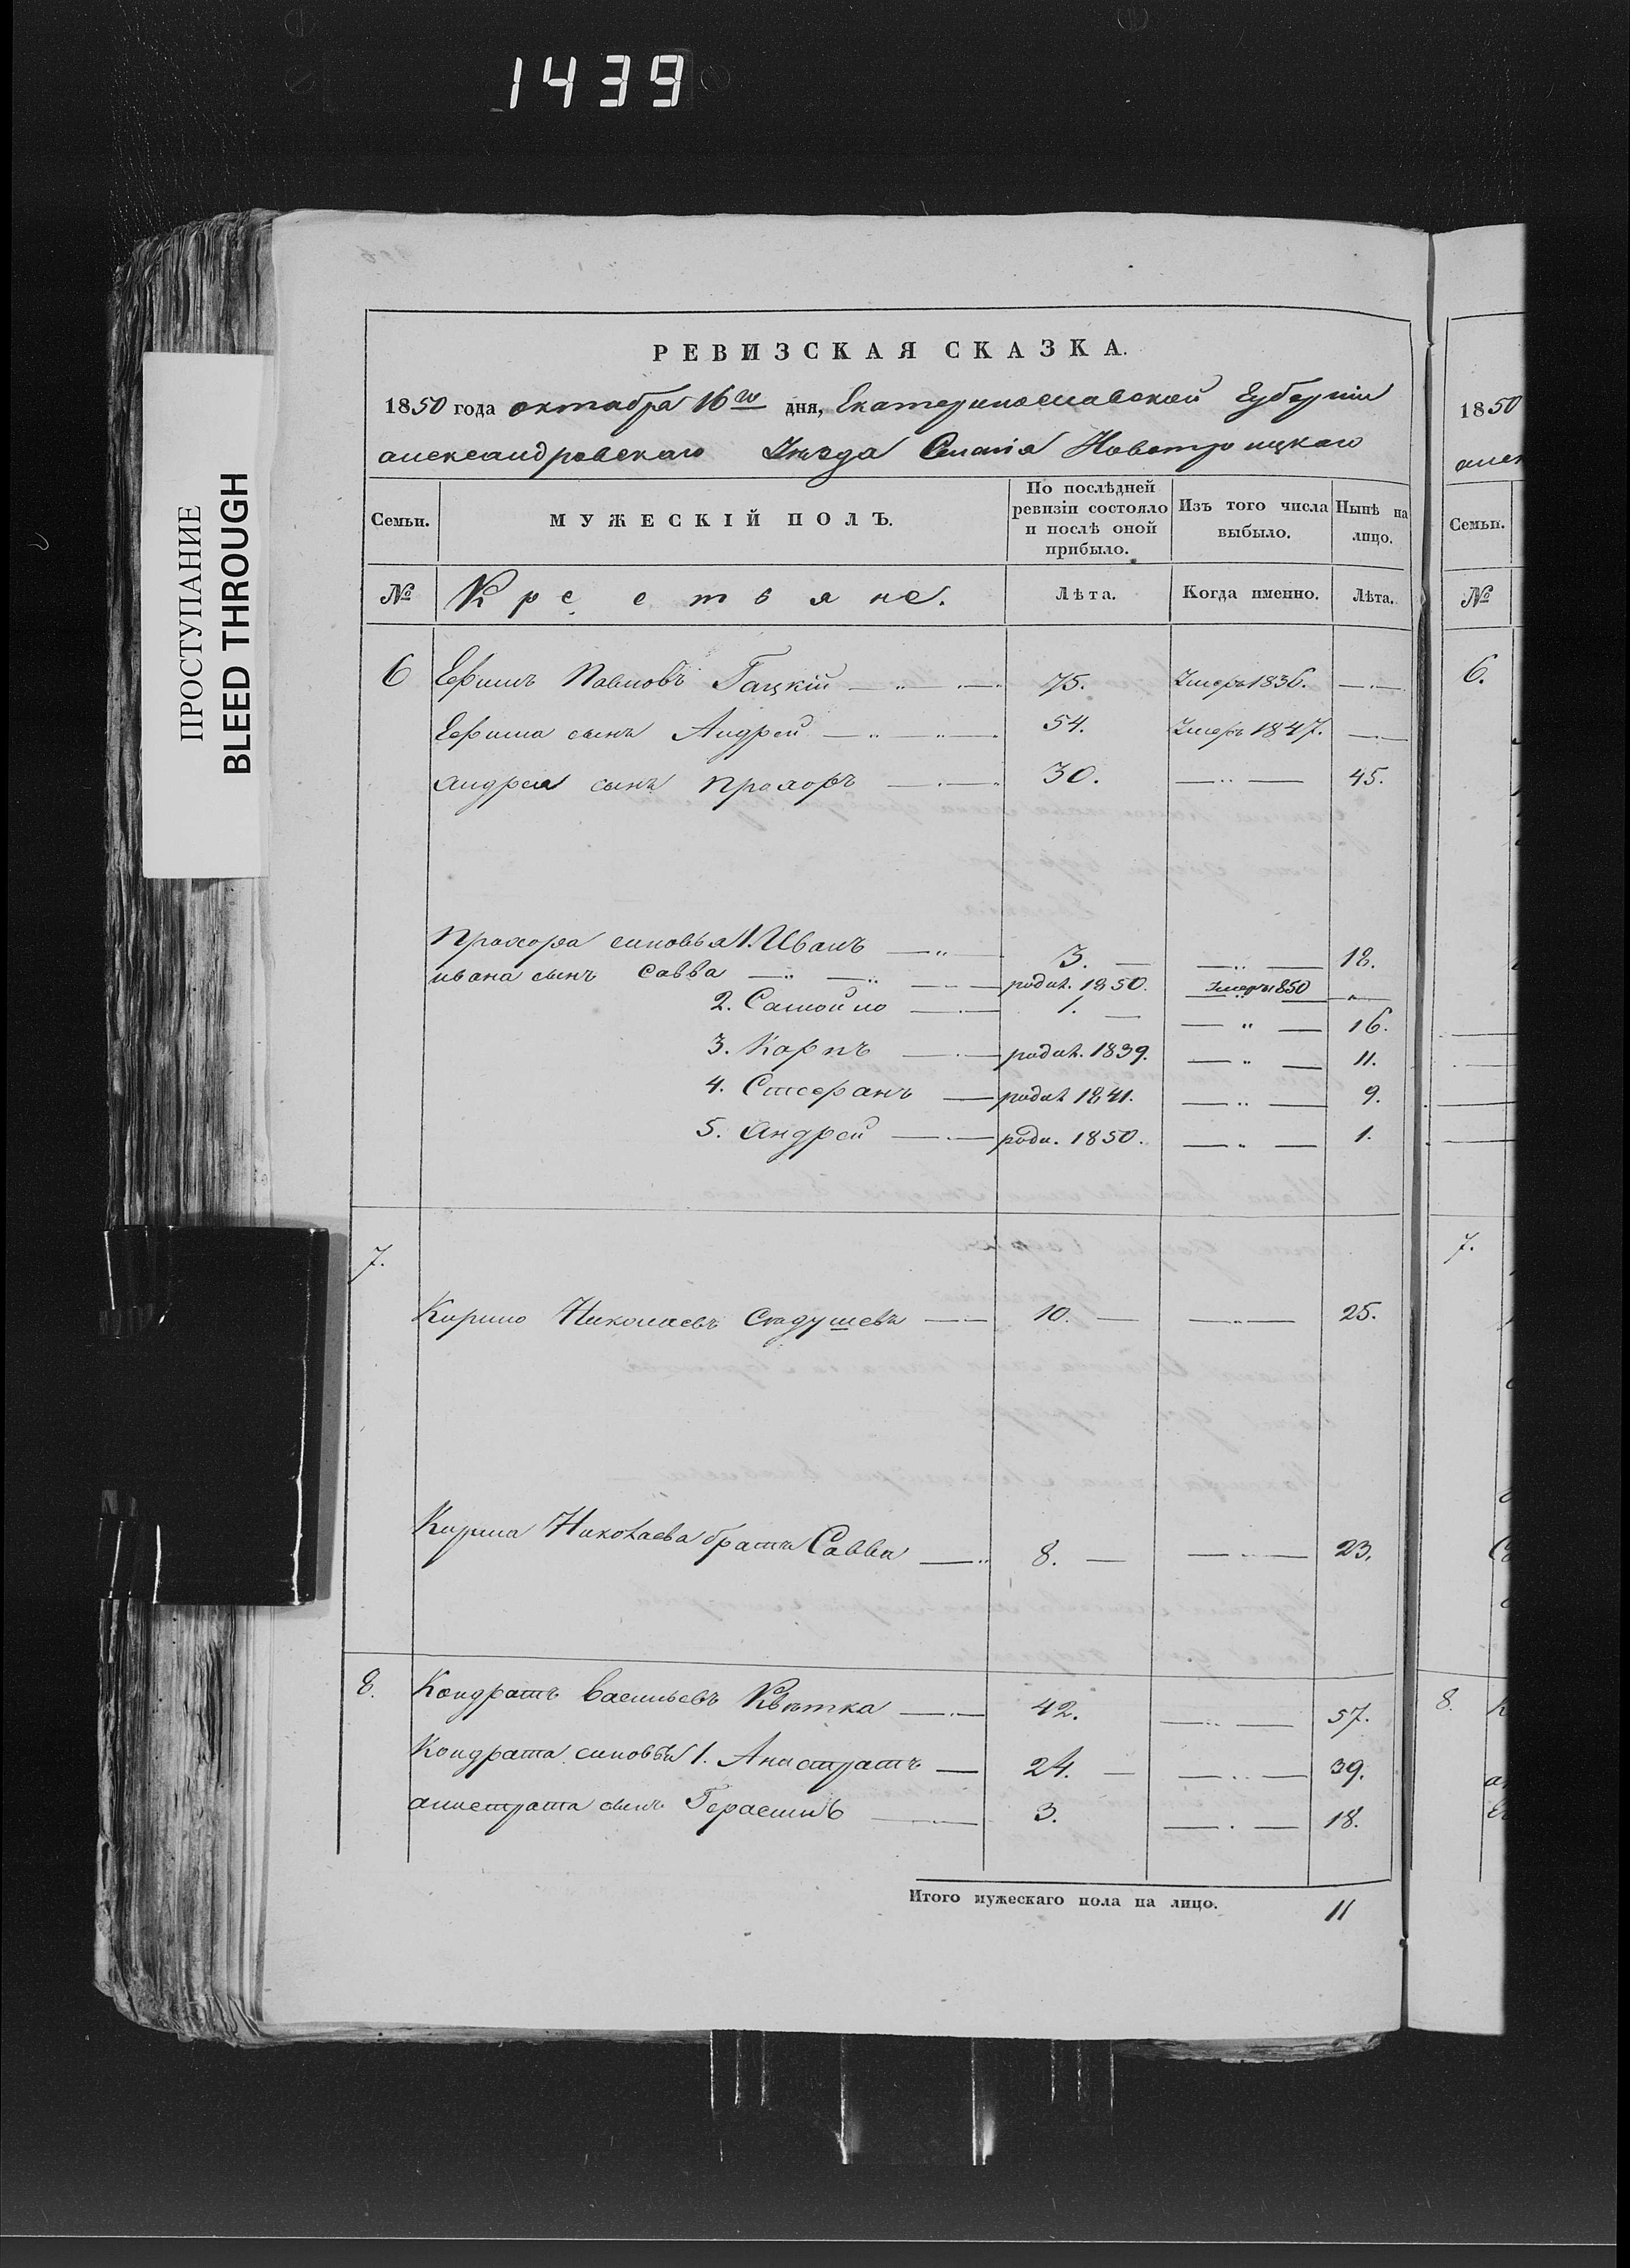 1439
ПРОСТУПАНИЕ
BLEED THROUGH
РЕВИЗСКАЯ СКАЗКА.
1850 года октабра 16го дня, Екатеринославской Губерніи
александровскаго Уѣзда Селенія Новотроицкаго
Семьи.
МУЖЕСКІЙ ПОЛЪ.
По послѣдней ревизіи состояло и послѣ оной прибыло.
Изъ того числа выбыло.
Нынѣ на лицо.
№ Крестьяне. Лѣта. Когда именно. Лѣта.
6 Ефимъ Павловъ Гацкій 75. Умеръ 1836.
Ефима сынъ Андрей 54. Умеръ 1847.
Андрея сынъ Прохоръ 30. 45.
Прохора синовья 1. Иванъ 3. 18.
ивана сынъ Савва родил. 1850. Умеръ 1850
2. Самойло 1. 16.
3. Карпъ родил. 1839. 11.
4. Стефанъ родил 1841. 9.
5. Андрей роди. 1850. 1.
7.
Кирило Николаевъ 10. 25.
Кирила Николаева братъ Савва 8. 23.
8. Кондратъ Васильевъ Квѣтка 42. 57.
Кондрата синовья 1. Анистратъ 24. 39.
анистрата сынъ Герасимъ 3. 18.
Итого мужескаго пола на лицо. 11
1850
Семьи.
№
6.
7.
8.